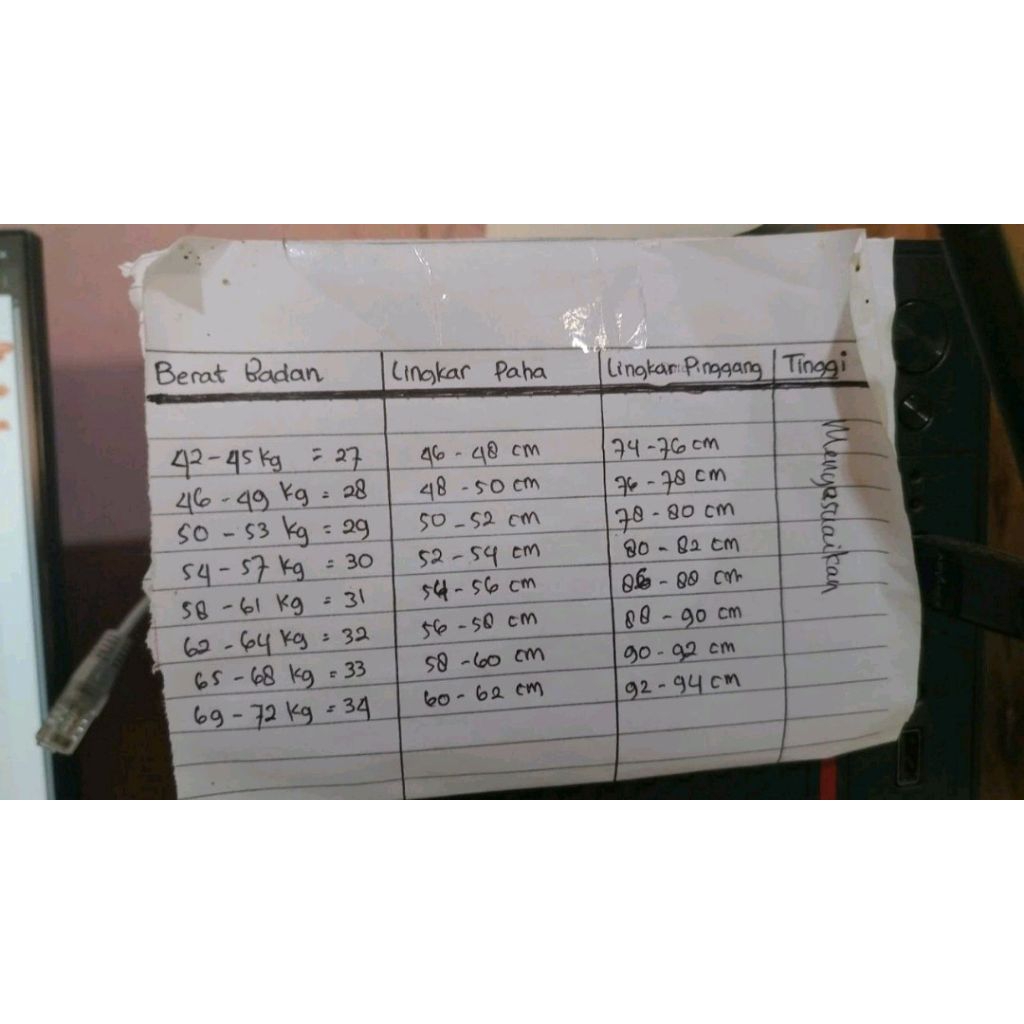 Berat Badan Lingkar Paha Lingkar Pinggang Tinggi
42-45 kg = 27 46 - 48 cm 74-76 cm
46 - 49 kg = 28 48 - 50 cm 76 - 78 cm
50 - 53 kg = 29 50 - 52 cm 78 - 80 cm
54 - 57 kg = 30 52 - 54 cm 80 - 82 cm
58 - 61 kg = 31 54 - 56 cm 86 - 88 cm
62 - 64 kg = 32 56 - 58 cm 88 - 90 cm
65 - 68 kg = 33 58 - 60 cm 90 - 92 cm
69 - 72 kg = 34 60 - 62 cm 92 - 94 cm
Menyasuaikan